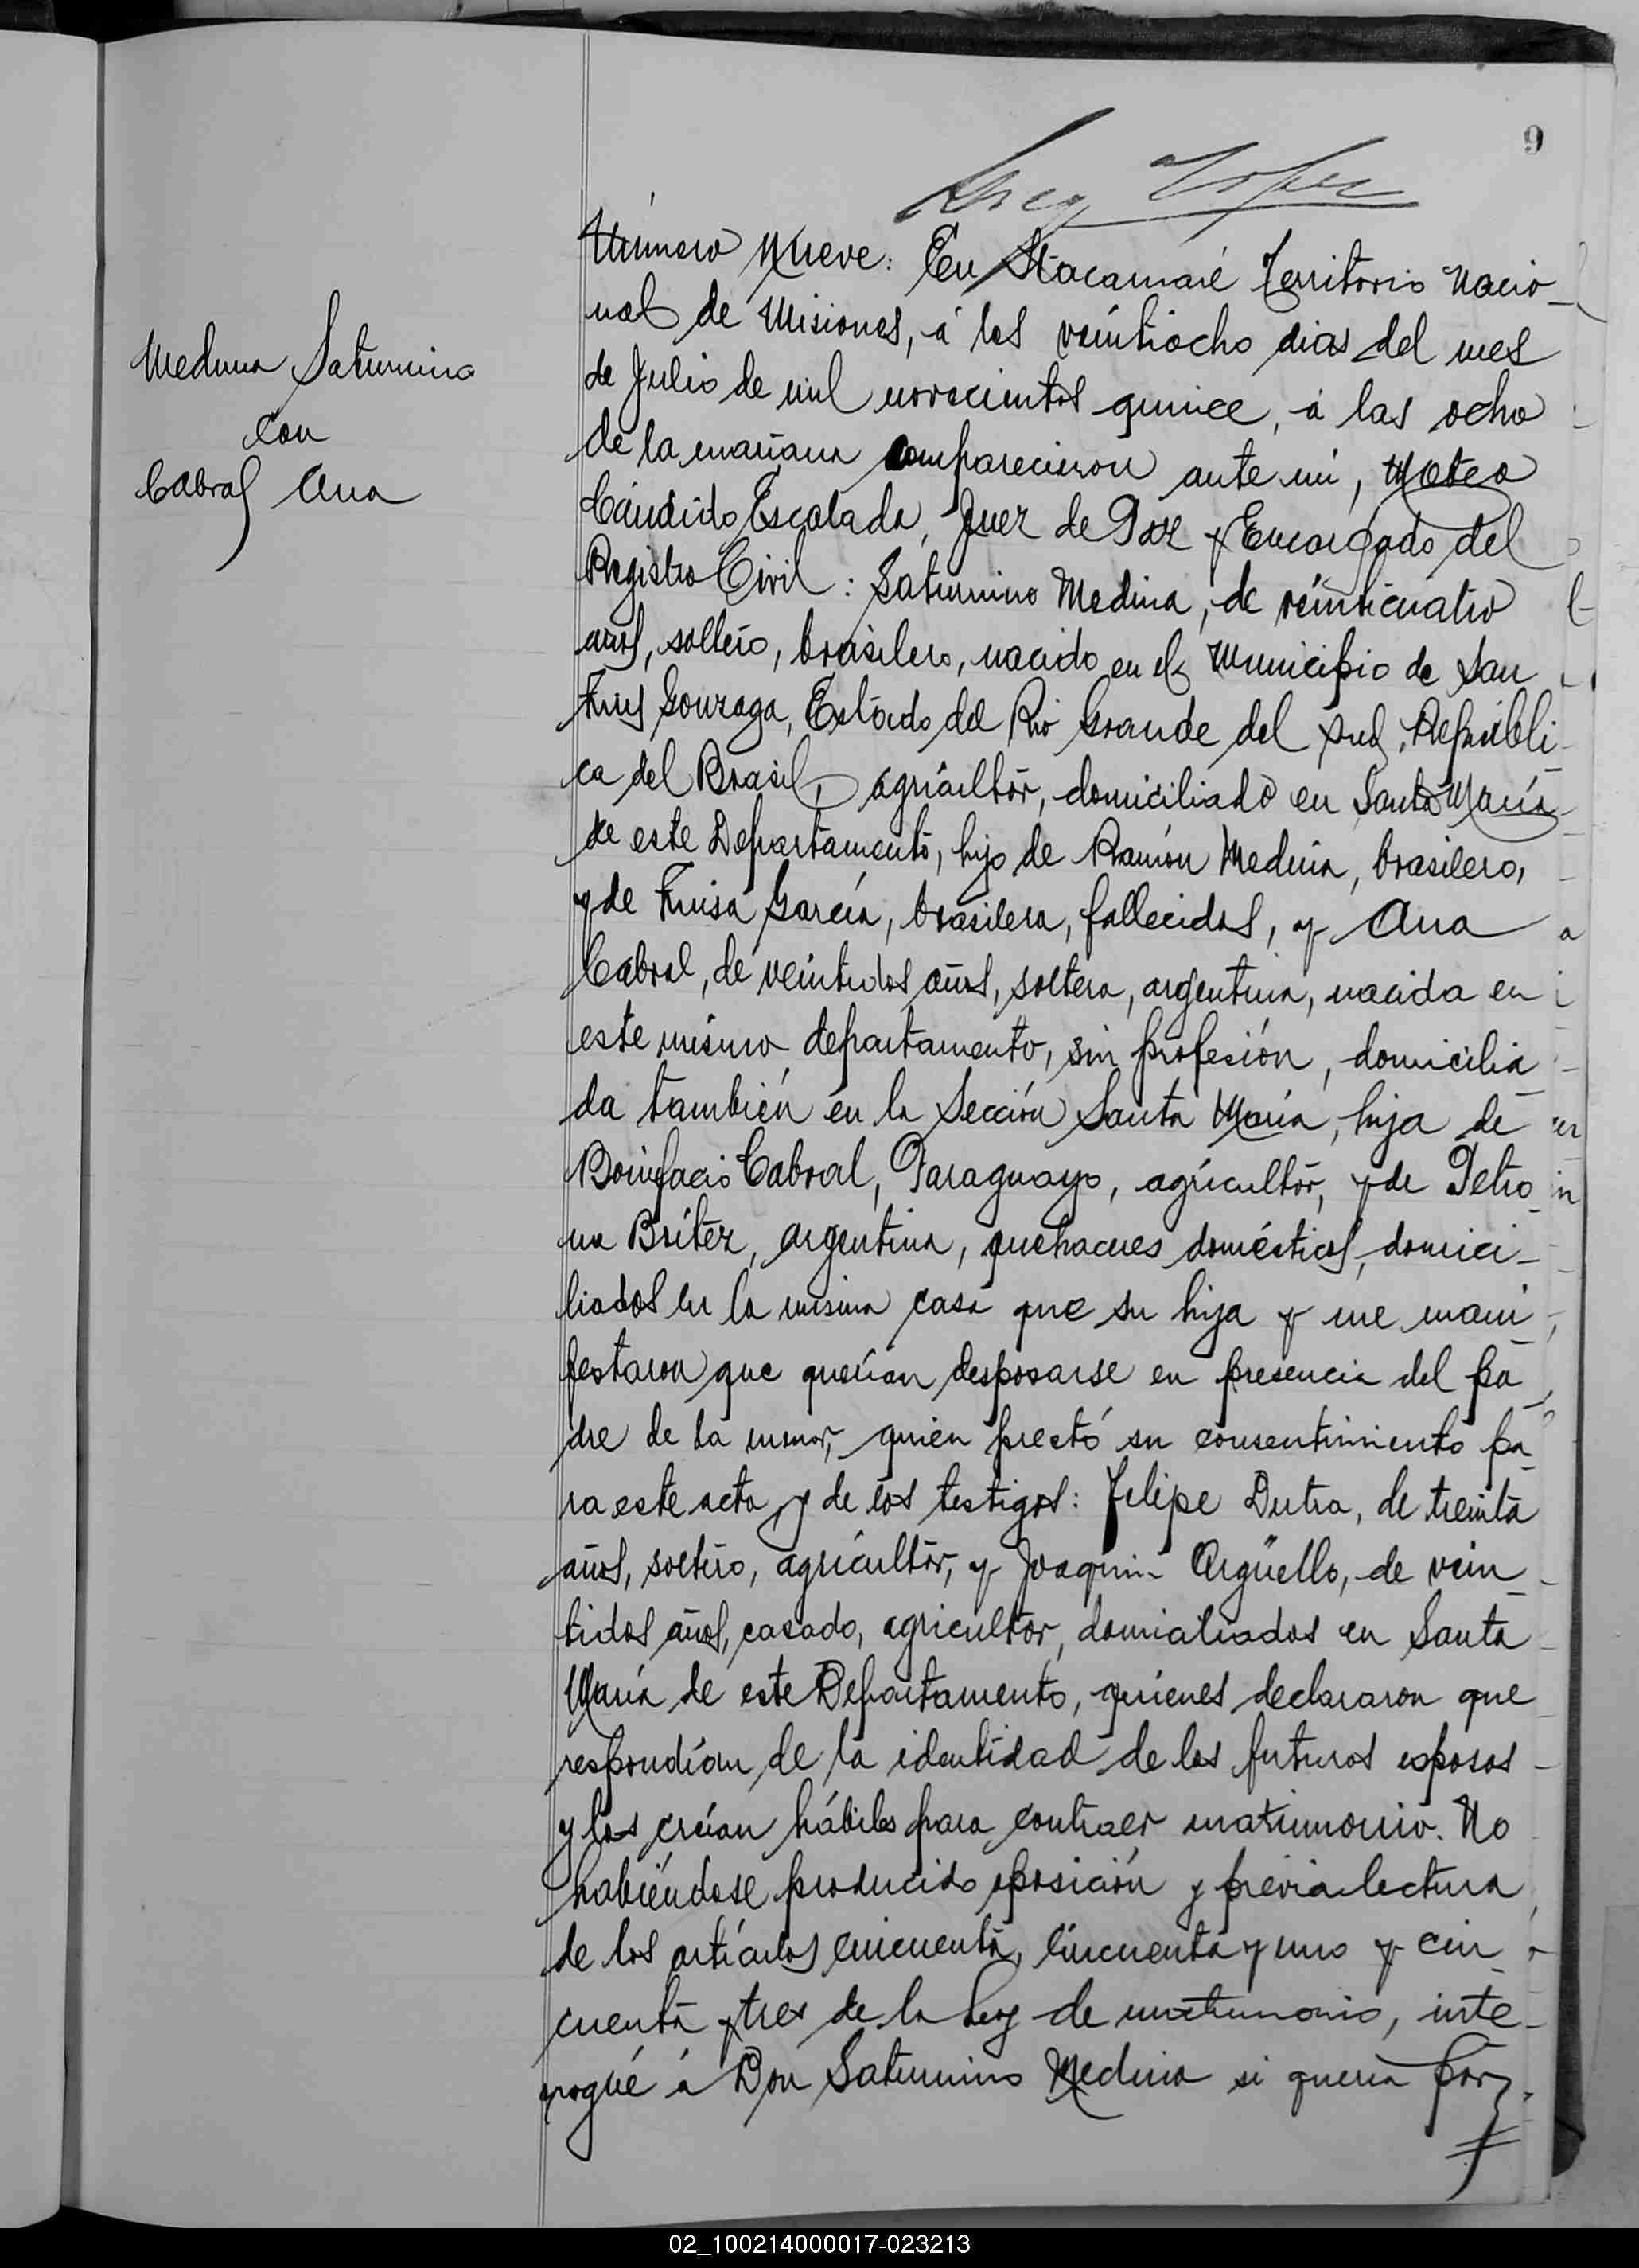 9
Medina Saturnino
con
Cabral Ana
Número Nueve: En Itacaruaré Territorio Nacio-
nal de Misiones, á los veintiocho dias del mes
de Julio de mil novecientos quince, á las ocho
de la mañana comparecieron ante mí, Mateo
Cándido Escalada, Juez de Paz y Encargado del
Registro Civil: Saturnino Medina, de veinticuatro
años, soltero, brasilero, nacido en el Municipio de San
Luis Gonzaga, Estado del Rio Grande del Sud, Repúbli-
ca del Brasil, agricultor, domiciliado en Santa María
de este Departamento, hijo de Ramón Medina, brasilero,
y de Luisa García, brasilera, fallecidos, y Ana
Cabral, de veintidos años, soltera, argentina, nacida en
este mismo departamento, sin profesión, domicilia-
da también en la Sección Santa María, hija de
Bonifacio Cabral, Paraguayo, agricultor, y de Petro-
na Brítez, argentina, quehaceres domésticos, domici-
liados en la misma casa que su hija y me mani-
festaron que querían desposarse en presencia del pa-
dre de la menor, quien prestó su consentimiento pa-
ra este acto, y de los testigos: Felipe Dutra, de treinta
años, soltero, agricultor, y Joaquin Argüello, de vein-
tidos años, casado, agricultor, domiciliados en Santa
María de este Departamento, quienes declararon que
respondían de la identidad de los futuros esposos
y los creían hábiles para contraer matrimonio. No
habiéndose producido oposición y previa lectura
de los artículos cincuenta, cincuenta y uno y cin-
cuenta y tres de la Ley de matrimonio, inte-
rrogué á Don Saturnino Medina si quería por
02_100214000017-023213